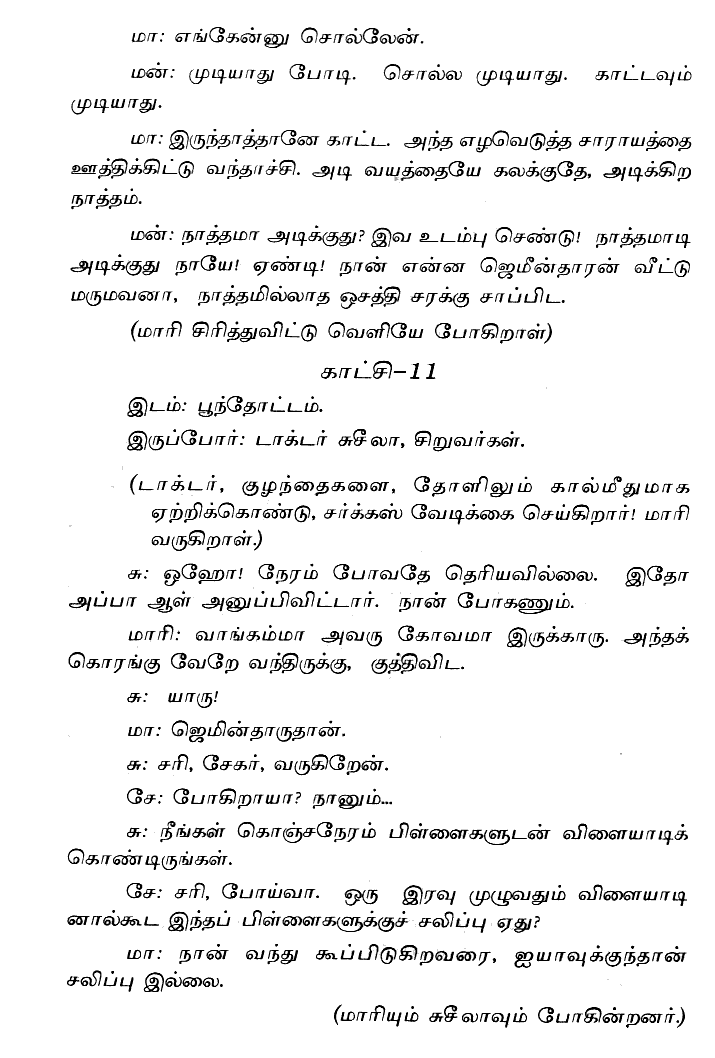 மா: எங்கேன்னு சொல்லேன்.
மன்: முடியாது போடி. சொல்ல முடியாது. காட்டவும்
முடியாது.
மா: இருந்தாத்தானே காட்ட. அந்த எழவெடுத்த சாராயத்தை
ஊத்திக்கிட்டு வந்தாச்சி. அடி வயுத்தையே கலக்குதே, அடிக்கிற
நாத்தம்.
மன்: நாத்தமா அடிக்குது? இவ உடம்பு செண்டு! நாத்தமாடி
அடிக்குது நாயே! ஏண்டி! நான் என்ன ஜெமீன்தாரன் வீட்டு
மருமவனா, நாத்தமில்லாத ஒசத்தி சரக்கு சாப்பிட.
(மாரி சிரித்துவிட்டு வெளியே போகிறாள்)
காட்சி–11
இடம்: பூந்தோட்டம்.
இருப்போர்: டாக்டர் சுசீலா, சிறுவர்கள்.
(டாக்டர், குழந்தைகளை, தோளிலும் கால்மீதுமாக
ஏற்றிக்கொண்டு, சர்க்கஸ் வேடிக்கை செய்கிறார்! மாரி
வருகிறாள்.)
சு: ஒஹோ! நேரம் போவதே தெரியவில்லை. இதோ
அப்பா ஆள் அனுப்பிவிட்டார். நான் போகணும்.
மாரி: வாங்கம்மா அவரு கோவமா இருக்காரு. அந்தக்
கொரங்கு வேறே வந்திருக்கு, குத்திவிட.
சு: யாரு!
மா: ஜெமின்தாருதான்.
சு: சரி, சேகர், வருகிறேன்.
சே: போகிறாயா? நானும்...
சு: நீங்கள் கொஞ்சநேரம் பிள்ளைகளுடன் விளையாடிக்
கொண்டிருங்கள்.
சே: சரி, போய்வா. ஒரு இரவு முழுவதும் விளையாடி
னால்கூட இந்தப் பிள்ளைகளுக்குச் சலிப்பு ஏது?
மா: நான் வந்து கூப்பிடுகிறவரை, ஐயாவுக்குந்தான்
சலிப்பு இல்லை.
(மாரியும் சுசீலாவும் போகின்றனர்.)